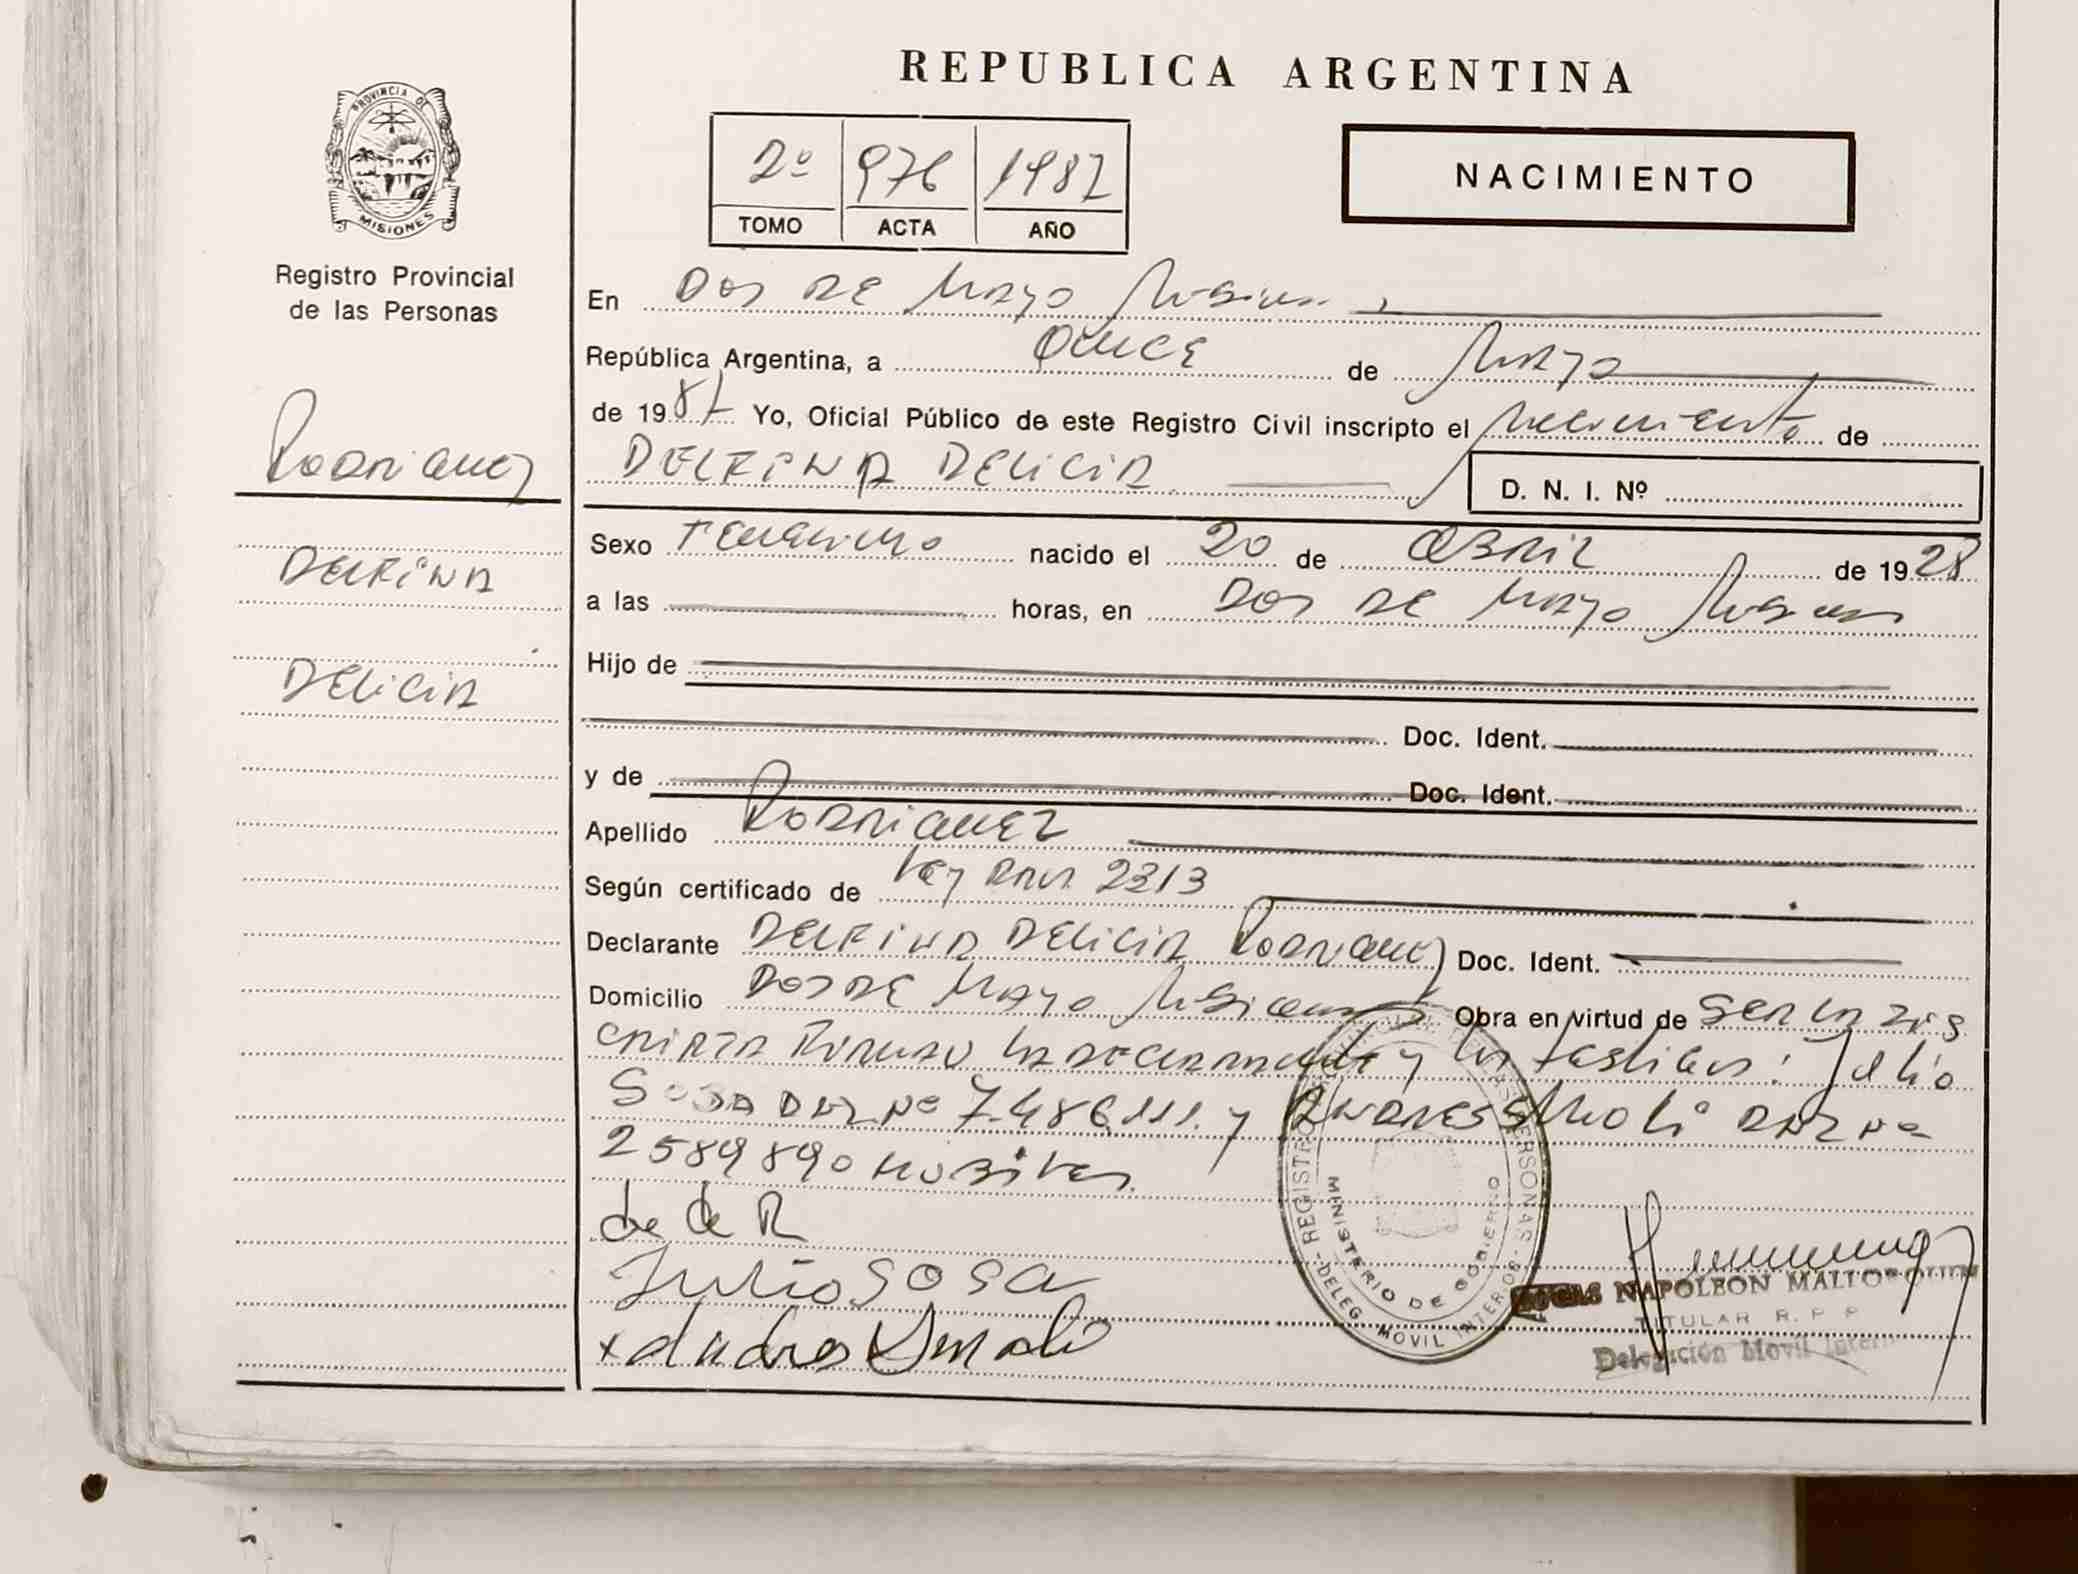 REPUBLICA ARGENTINA
PROVINCIA DE MISIONES
Registro Provincial
de las Personas
2º 976 1987
TOMO ACTA AÑO
NACIMIENTO
En Dos DE Mayo Misiones
República Argentina, a Once de Mayo
de 1987 Yo, Oficial Público de este Registro Civil inscripto el nacimiento de
DELFINA DELICIA D. N. I. Nº
Rodriguez
DELFINA
DELICIA
Sexo Femenino nacido el 20 de Abril de 1928
a las horas, en Dos DE Mayo Misiones
Hijo de
Doc. Ident.
y de Doc. Ident.
Apellido Rodriguez
Según certificado de Ley 2313
Declarante DELFINA DELICIA Rodriguez Doc. Ident.
Domicilio Dos DE Mayo Misiones Obra en virtud de ser la
Firman la declarante y los testigos: Julio
Sosa DNI Nº 7.486.111. y Andres Smoli DNI Nº
2589890
d e d e R
Julio SOSA
x Andres Smoli
REGISTRO PERSONAS - DELEG MOVIL INTER 08
MINISTERIO DE GOBIERNO
NAPOLEON
TITULAR R. P. P
Delegación Movil Intern